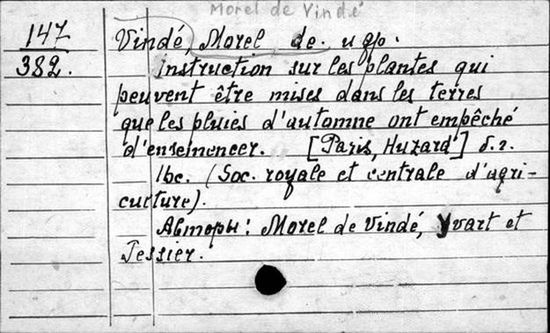 Morel de Vindé
147
382.
Vindé, Morel de. и др.
Instruction sur les plantes qui
peuvent être mises dans les terres
que les pluies d'automne ont empêché
d'ensemencer. [Paris, Huzard] б.г.
16c. (Soc. royale et centrale d'agri-
culture).
Авторы: Morel de Vindé, Yvart et
Tessier.